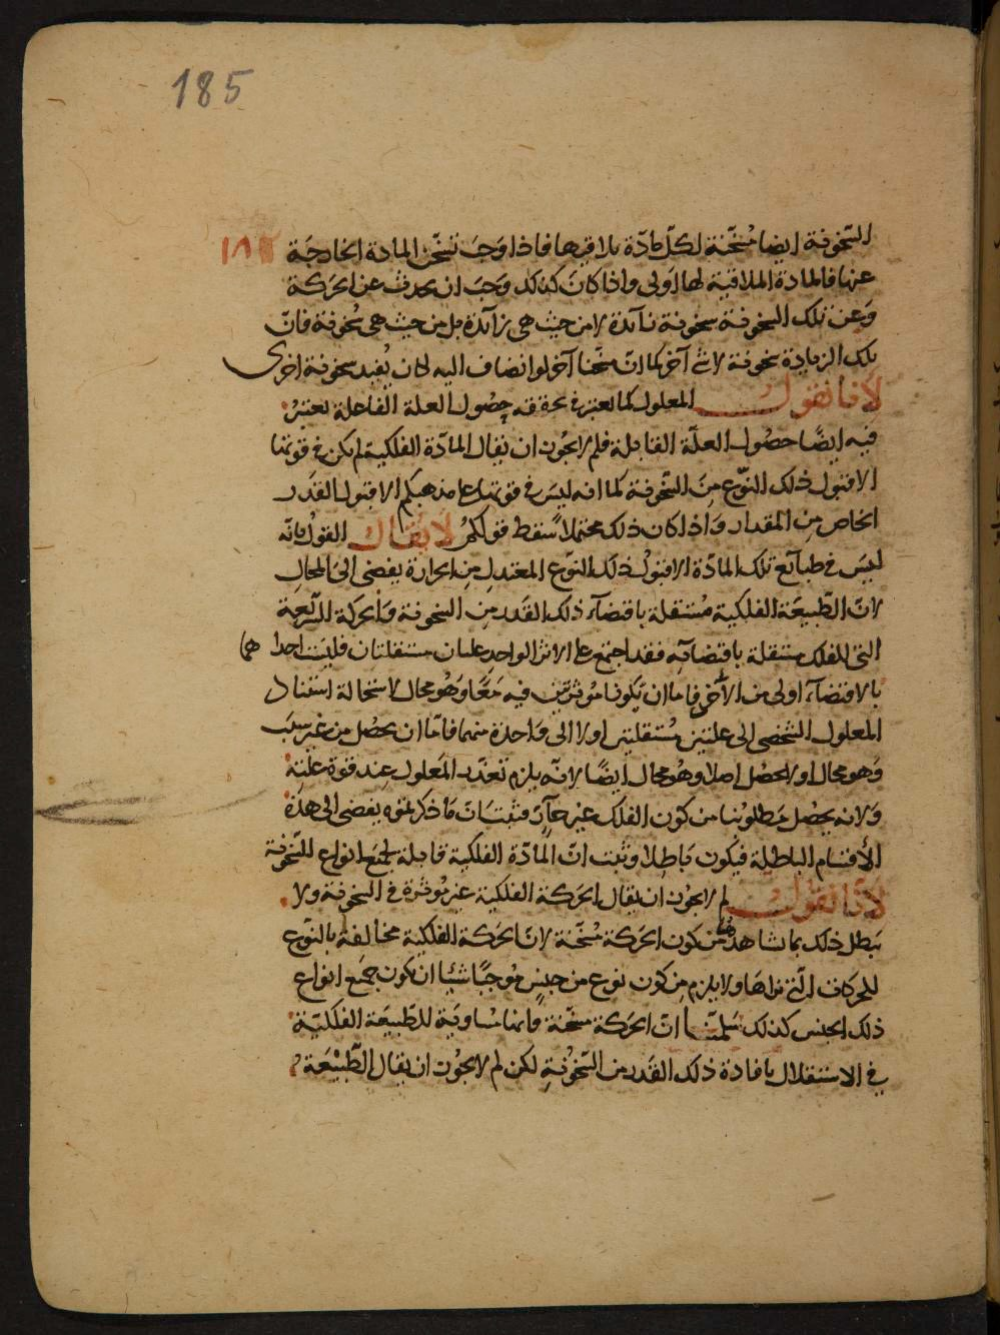 185
السخونة ايضا مُسَخّنة لكلّ مادّة يلاقيها فاذا وَجَبَ تسخّن المادة الخارجَة ١٨٦
عنها فالمادة الملاقية لها اَولى واذا كانَ كذلك وَجَبَ ان يحدث عن الحركة
وَعن تلك السخونة سخونة زآئدة لا من حيث هى زآئدة بل من حيث هى سُخونة فانّ
تلك الزيادة سخونة لا شئ آخر كما انّ مسخّنا آخر لو انضاف اليه لكان يُفيد سخونة اخرى
لانا نقول المعلول كما يعتبر فى تحققه حصُول العلة الفاعلة يعتبرُ
فيه ايضًا حصُول العلّة القابلة فلم لا يجُوز ان يقال المادّة الفلكية لم يكن فى قوتها
الا قبول ذلك النوّع مِنَ السّخونة كما انه ليسَ فى قوتها على مذهبكم الا قبول القَدر
الخاص مِن المقدار وَاذا كان ذلك محتملاً سقط قولكمُ لا يُقال القول بانّه
ليسَ فى طبآئع تلك المادّة الا قبولُ ذلكَ النوّع المعتدل مِن الحرارة يفضى الىَ المحالِ
لانّ الطّبيعَة الفلكية مُستقلة باقتضآء ذلك القَدر مِن السخونة وَالحركة السّريعة
التى للفلك مستقلة باقتضآئه فقد اجتمع على الاثر الواحدِ علتان مستقلتان فليسَت احداهما
بالاقتضآء اولى من الاخرى فاما ان يكونا مُوثرتَين فيه مَعًا وَهُو محال لاستحالة استناد
المعلول الشخصى الى علتين مُستقلتين او لا الى وَاحدة منهما فامّا ان يحصُل من غير سبَب
وَهو محال او لا يحصُل اصلا وهُو محال ايضًا لانّه يلزم تعذّر المَعلول عِند قوة علته
وَلانه يحصُل مَطلوبُنا من كَون الفلك غير حآرّ فثبتَ انّ مَا ذكرتموه يفضى الى هذِهْ
الأقسَام الباطِلة فيكون بَاطِلا وثبت انّ المادّة الفلكية قابلة لجَميع انواع السّخونة
لانّا نقول لم لا يجوز ان يقال الحركة الفلكية غير مُوثرة فى السخونة ولا
يَبطل ذلك بما شاهدناه من كون الحركة مُسخّنة لانّ الحركة الفلكية مخالفة بالنوّع
للحركات الّتى نراها ولا يلزم مِن كون نوع من جنسٍ مُوجبًا شيئًا ان يكون جميع انواع
ذلك الجنس كذلك سَلمنَا انّ الحركة مسخّنة وَانها مُساوية للطّبيعَة الفلكيّة
فى الاستقلال بافادة ذلك القَدر من السّخُونةِ لكن لم لا يجُوز ان يقال الطّبيْعَة